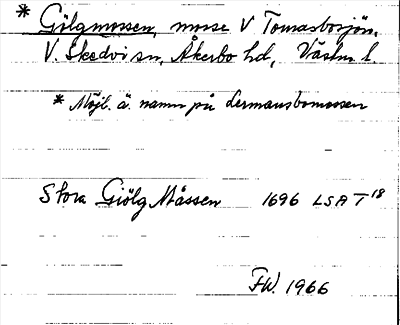 * Gölgmossen, mosse V Tomasbosjön,
V. Skedvi sn, Åkerbo hd, Västm. l
* Möjl. ä. namn på Lermansbomossen
Stora Giölg Måssen 1696 LSA T 18
FW. 1966